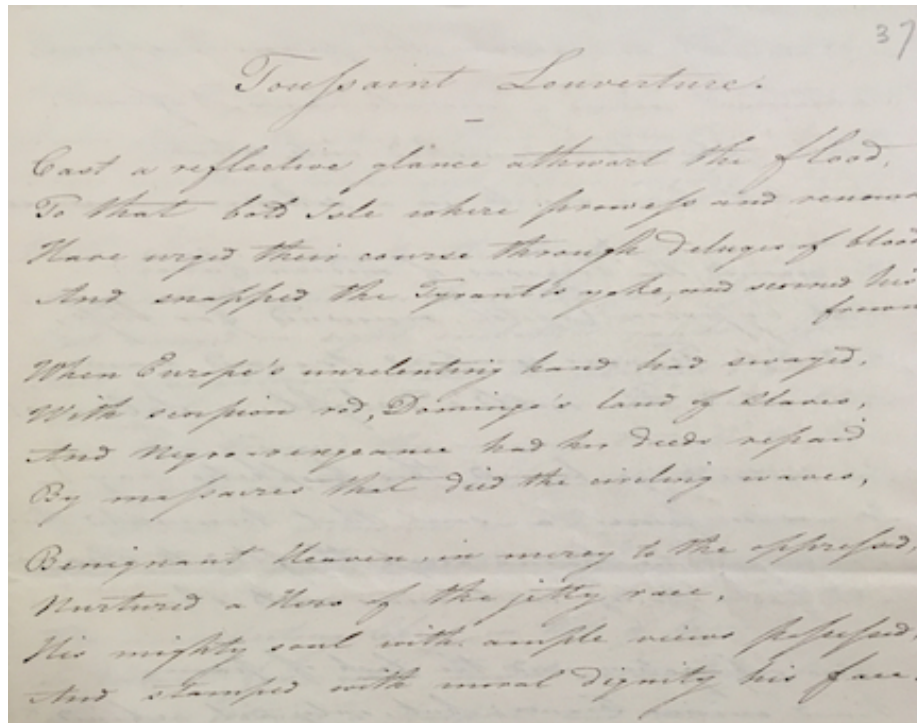 37
Toussaint Louverture.
Cast a reflective glance athwart the flood,
To that bold Isle where prowess and renown
Have urged their course through deluges of blood
And snapped the Tyrant's yoke, and scorned his
frown
When Europe's unrelenting hand had swayed,
With scorpion rod, Domingo's land of Slaves,
And Negro-vengeance had her deeds repaid
By massacres that died the circling waves,
Benignant Heaven, in mercy to the oppressed,
Nurtured a Hero of the jetty race,
His mighty soul with ample views possessed
And stamped with moral dignity his face.